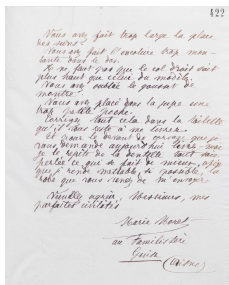 422
Vous avez fait trop large la place
des seins.
Vous avez fait l'encolure trop mon-
tante dans le dos.
Il ne faut pas que le col droit soit
plus haut que celui du modèle.
Vous avez oublié le gousset de
montre.
Vous avez placé dans la jupe une
trop petite poche.
Corrigez tout cela dans la toilette
qu'il vous reste à me livrer.
Et pour le devant de corsage que je
vous demande aujourd'hui
je le répète de la dentelle
ce qui se fait de mieux, afin
que je rende mettable, si possible, la
robe que vous venez de m'envoyer.
Veuillez agréer, Messieurs, mes
parfaites civilités
Marie Moret
au Familistère
Guise
(Aisne)